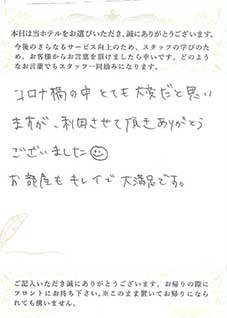 本日は当ホテルをお選びいただき、誠にありがとうございます。
今後のさらなるサービス向上のため、スタッフの学びのた
め、お客様からお言葉を頂けましたら幸いです。どのよう
なお言葉でもスタッフ一同励みになります。
コロナ禍の中 とても大変だと思い
ますが、利用させて頂きありがとう
ございました
お部屋も キレイで 大満足です。
ご記入いただき誠にありがとうございます。お帰りの際に
フロントにお持ち下さい。※このまま置いてお帰りになら
れても構いません。